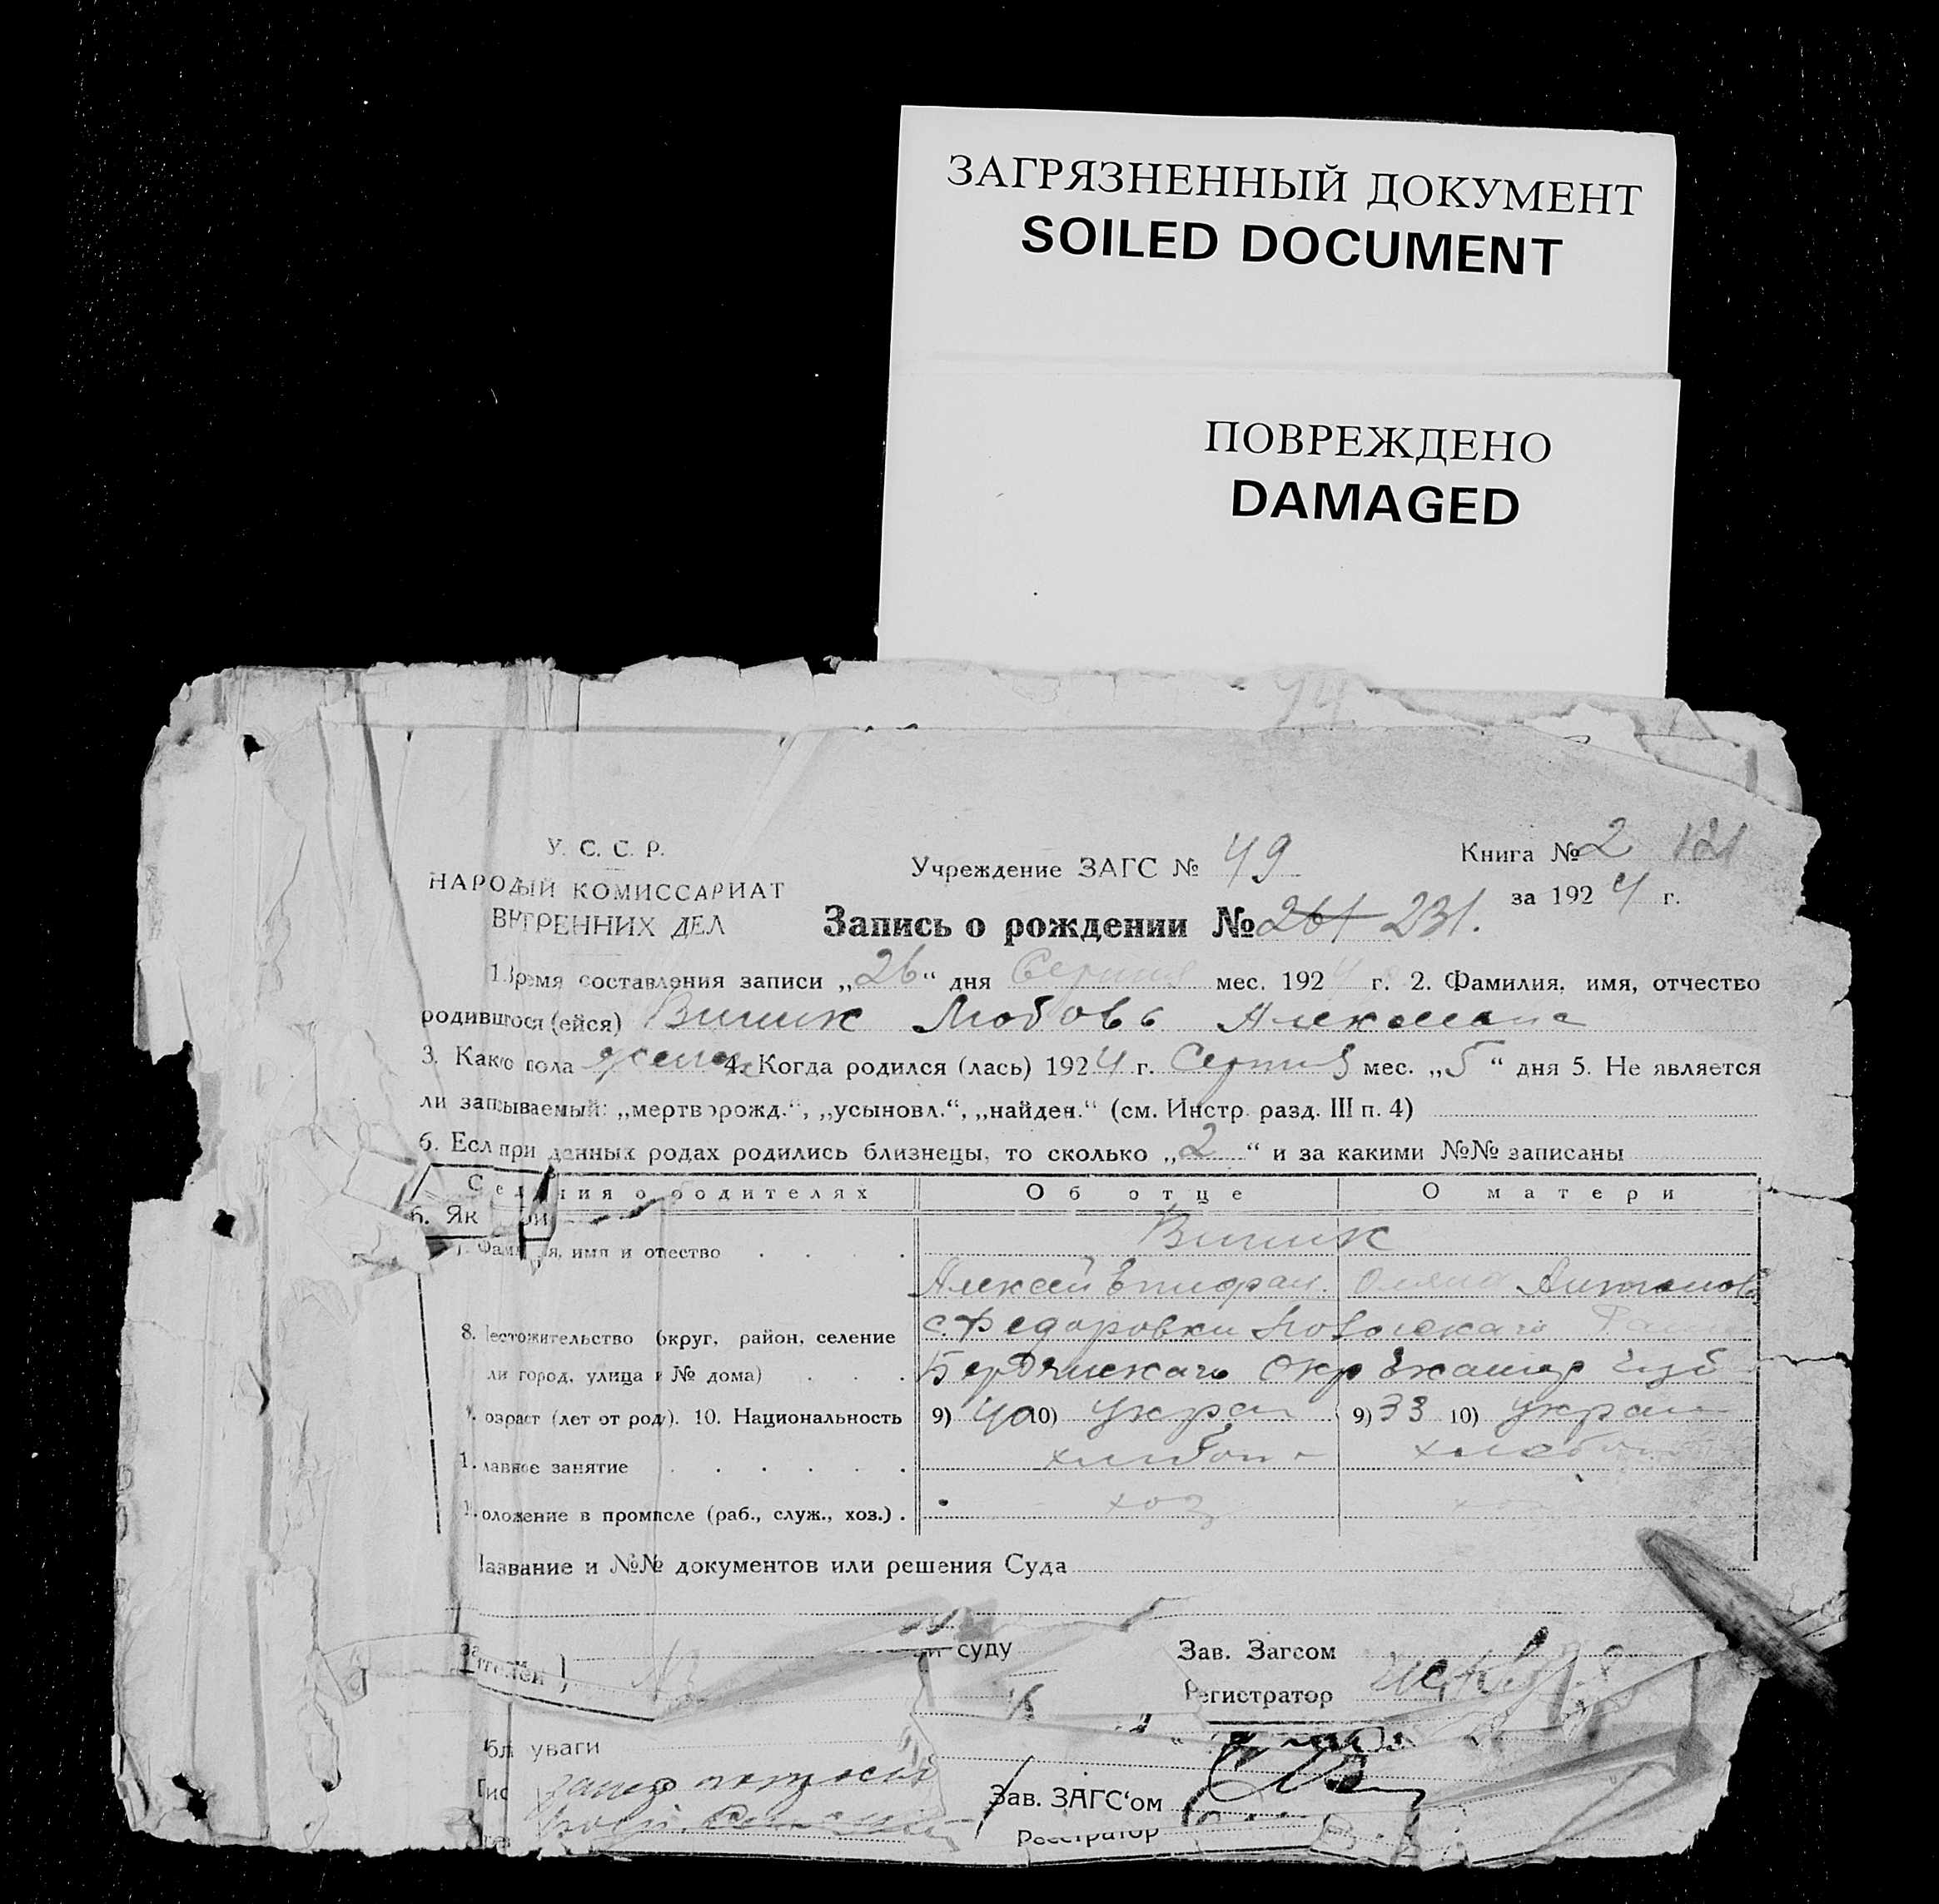 ЗАГРЯЗНЕННЫЙ ДОКУМЕНТ
SOILED DOCUMENT
ПОВРЕЖДЕНО
DAMAGED
У. С. С. Р.
НАРОДНЫЙ КОМИССАРИАТ
ВНУТРЕННИХ ДЕЛ
Учреждение ЗАГС № 49
Книга № 2 121
за 1924 г.
Запись о рождении № 261 231.
1. Время составления записи „26“ дня Серпня мес. 1924 г. 2. Фамилия, имя, отчество
родившегося (ейся) Любовь
3. Какого пола женск 4. Когда родился (лась) 1924 г. Серпня мес. „5“ дня 5. Не является
ли записываемый: „мертворожд.“, „усыновл.“, „найден.“ (см. Инстр. разд. III п. 4)
6. Если при данных родах родились близнецы, то сколько „2“ и за какими №№ записаны
Сведения о родителях Об отце О матери
6. Як
7. Фамилия, имя и отчество
Алексей Епифан. Антонов
8. Местожительство (округ, район, селение с. Федоровки
или город, улица и № дома) Бердянскаго Окр Екатер Губ
9. Возраст (лет от роду). 10. Национальность 9) 40 10) Украин 9) 33 10) Украин
11. Главное занятие хлебоп
12. Положение в промысле (раб., служ., хоз.) . хоз хоз
Название и №№ документов или решения Суда
суду
Зав. Загсом
Регистратор
уваги
Зав. ЗАГС‘ом
Реєстратор